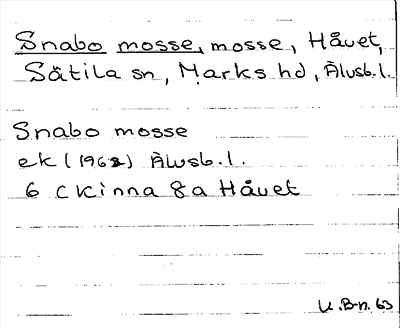 Snabo mosse, mosse, Håvet,
Sätila sn, Marks hd, Älvsb. l.
Snabo mosse
ek (1962) Älvsb. l.
6 C Kinna 8a Håvet
U. B-n. 63